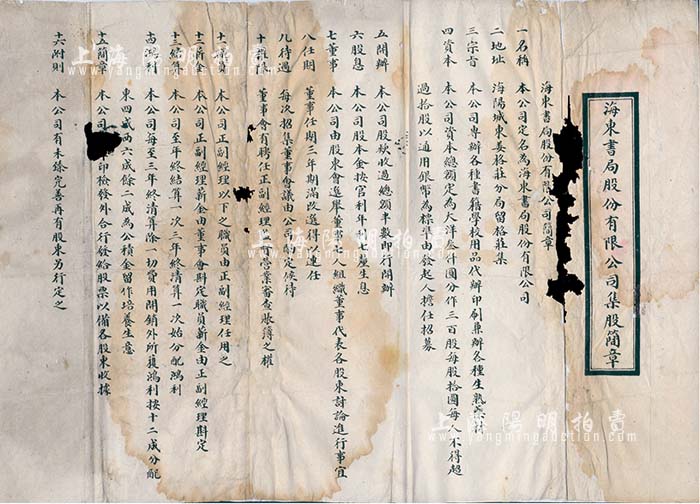 海東書局股份有限公司集股簡章
海東書局股份有限公司簡章
一名稱 本公司定名為海東書局股份有限公司
二地址 海陽城東姜格莊分局留格莊集
三宗旨 本公司專辦各種書籍學校用品代辦印刷兼辦各種生熟藥材
四資本 本公司資本總額定為大洋叁仟圓分作三百股每股拾圓每人不得超
過拾股以通用銀幣為標準由發起人擔任招募
五開辦 本公司股款收過總額半數即行開辦
六股息 本公司股本金按官利年 生息
七董事 本公司由股東會選舉董事 人組織董事代表各股東討論進行事宜
八任期 董事任期三年期滿改選得以連任
九待過 每次招集董事會議由公司酌定候待
十權 董事會有聘任正副經理 營業審查賬簿之權
十一 本公司正副經理以下之職員由正副經理任用之
十二薪金 本公司正副經理薪金由董事會斟定職員薪金由正副經理斟定
十三結算 本公司至年終結算一次三年終清算一次始分配鴻利
十四鴻利 本公司每至三年終清算除一切費用開銷外所獲鴻利按十二成分配
東四成西六成餘二成為公積金留作培養生意
十五簡章 本公司 印檢發外合行發給股票以備各股東收據
十六附則 本公司有未條完善再有股東另行定之
上海陽明拍賣
www.yangmingauction.com
上海陽明拍賣
www.yangmingauction.com
上海陽明拍賣
www.yangmingauction.com